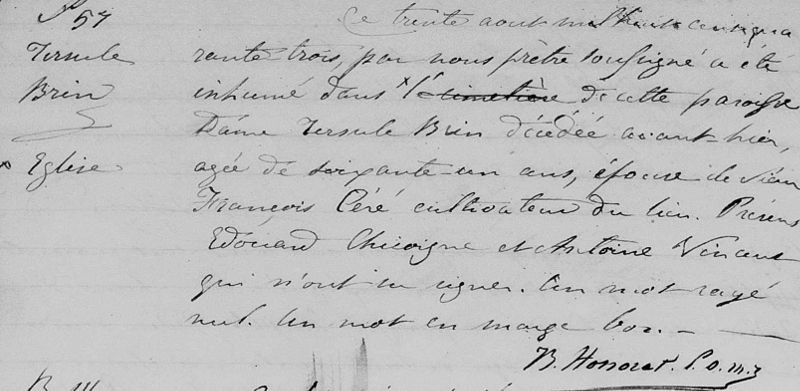 S 57
Tersule
Brin
x Eglise
Ce trente aout mil huit cent qua
rante trois, par nous prêtre soussigné a été
inhumé dans x l' cimetière de cette paroisse
Dame Tersule Brin décédée avant-hier,
agée de soixante-un ans, épouse de Sieur
François Céré cultivateur du lieu. Présens
Edouard Chicoigne et Antoine Vincent
qui n'ont su signer. Un mot rayé
nul. Un mot en marge bon. —
B. Honorat. P. o. m. j